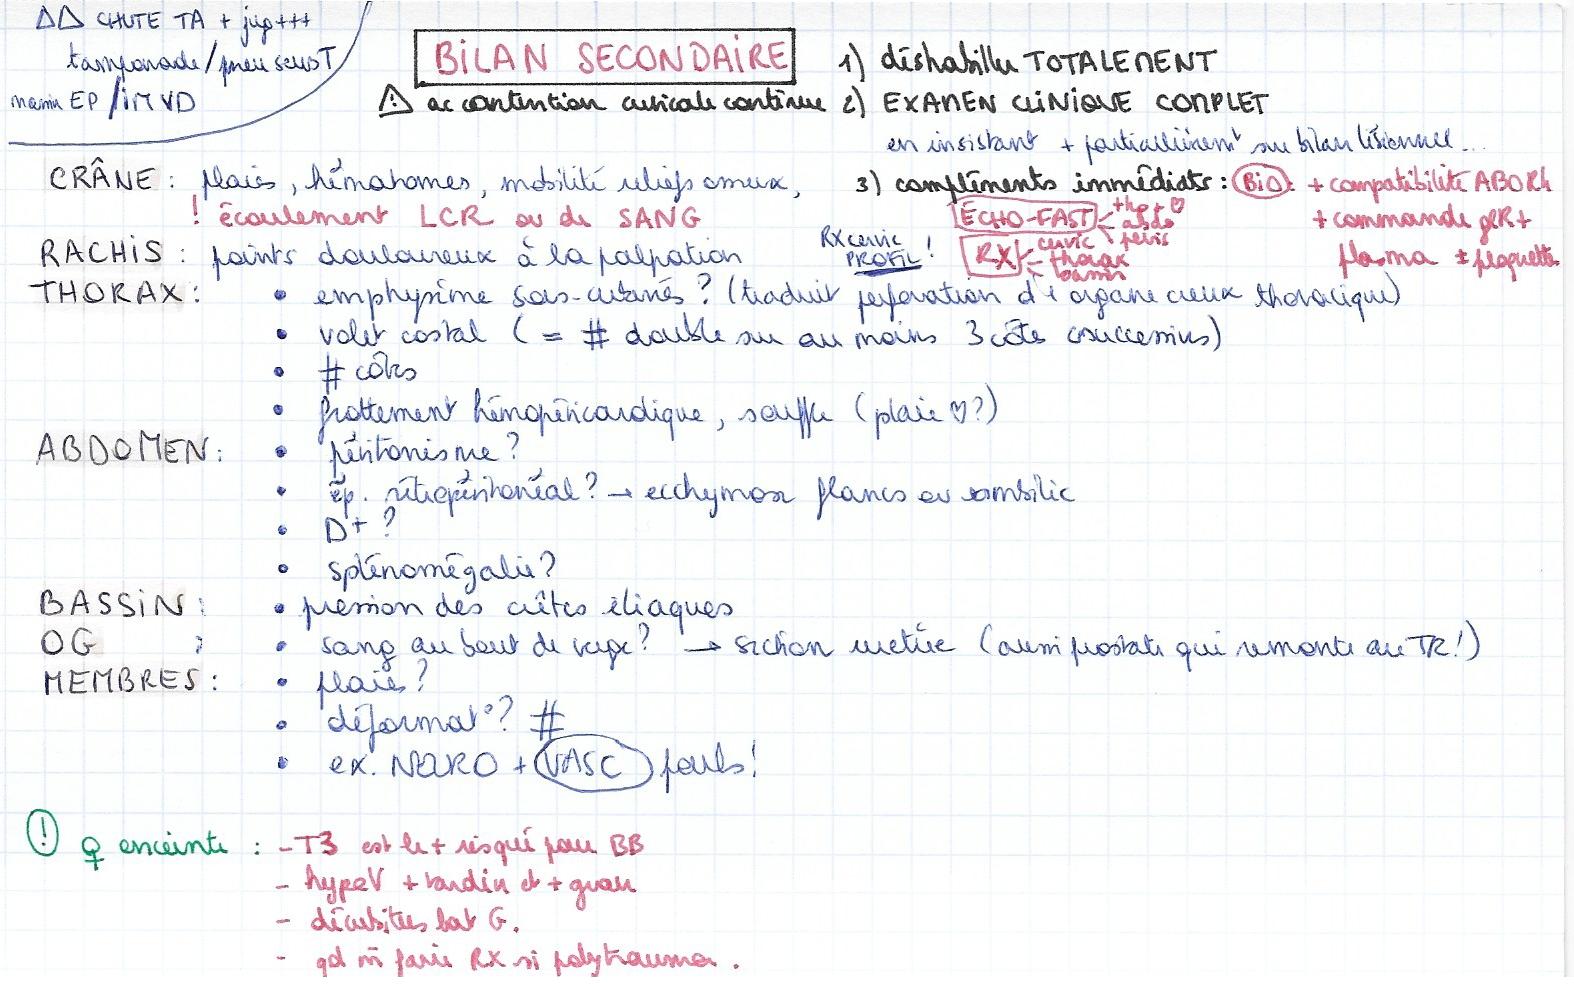 ΔΔ CHUTE TA + jug+++
tamponade/pneu sous T
EP/IMVD
BILAN SECONDAIRE
⚠ ac contention cervicale continue
1) déshabiller TOTALEMENT
2) EXAMEN CLINIQUE COMPLET
en insistant + particulièrement sur bilan lésionnel...
3) compléments immédiats: BIO: + compatibilité ABORh
+ commande gR+
plasma ± plaquettes
ÉCHO-FAST thp + ♡ abdo pelvis
RX cervic PROFIL!
RX cervic thorax bassin
CRÂNE: plaies, hématomes, mobilité reliefs osseux,
! écoulement LCR ou de SANG
RACHIS: points douloureux à la palpation
THORAX:
• emphysème sous-cutané? (traduit perforation d'1 organe creux thoracique)
• volet costal (= # double sur au moins 3 côtes successives)
• # côtes
• frottement hémopéricardique, souffle (plaie ♡?)
ABDOMEN:
• péritonisme?
• ép. rétropéritonéal? → ecchymose flancs ou ombilic
• D+?
• splénomégalie?
BASSIN: • pression des crêtes iliaques
OG: • sang au bout de verge? → section urètre (aussi prostate qui remonte au TR!)
MEMBRES: • plaies?
• déformat°? #
• ex. NEURO + VASC pouls!
! ♀ enceinte: - T3 est le + risqué pour BB
- hypoV + tardive et + grave
- décubitus lat G.
- qd m̂ faire RX si polytrauma.